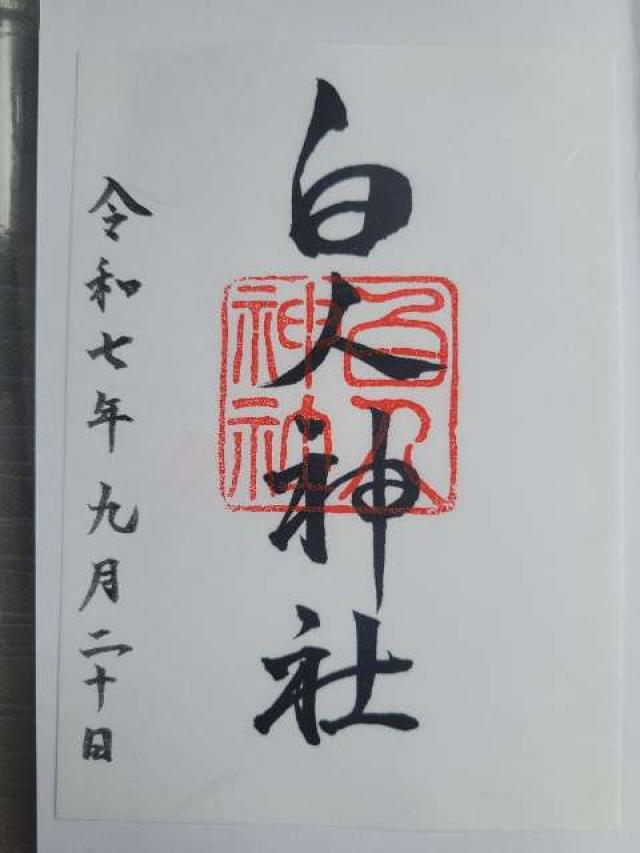 白人神社
白人
神社
令和七年九月二十日